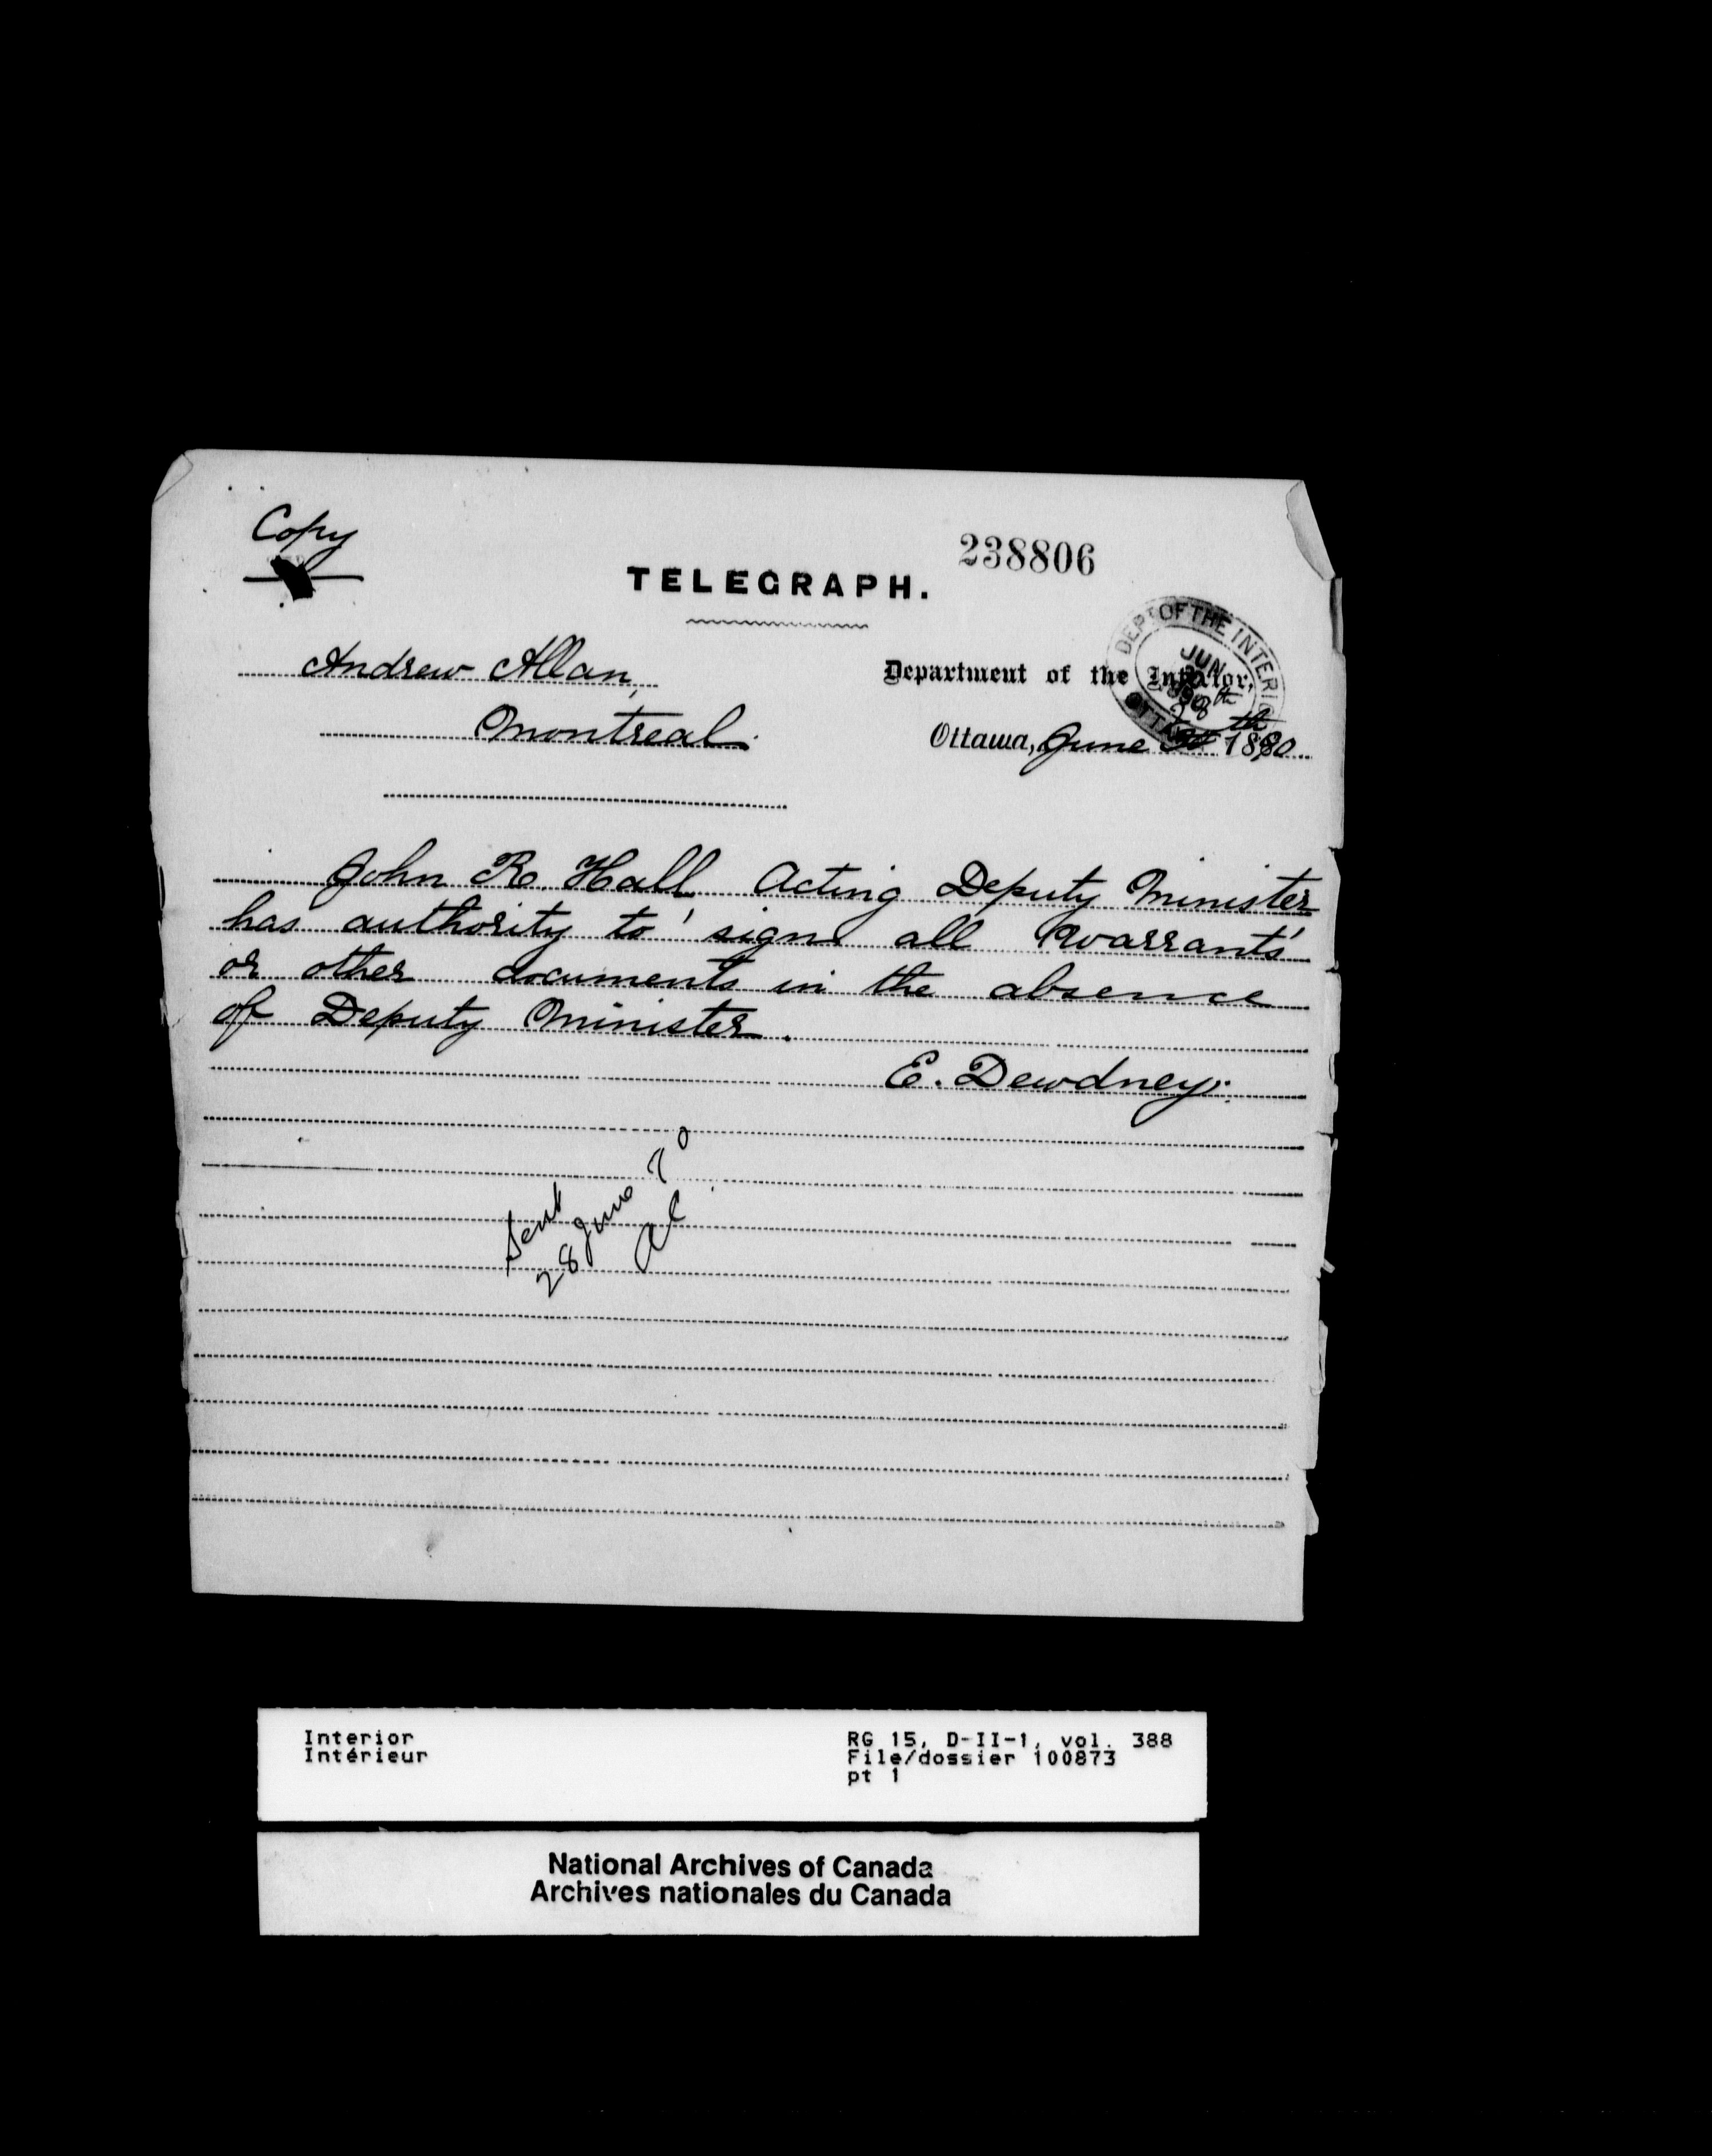 Copy
238806
TELEGRAPH.
DEPT OF THE INTERIOR
JUN
Andrew Allan,
Department of the Interior,
28th
Montreal.
Ottawa, June 1890
John R. Hall, Acting Deputy Minister
has authority to sign all Warrants
or other documents in the absence
of Deputy Minister.
E. Dewdney.
Sent
28 June 90
Interior
Intérieur
RG 15, D-II-1, vol. 388
File/dossier 100873
pt 1
National Archives of Canada
Archives nationales du Canada